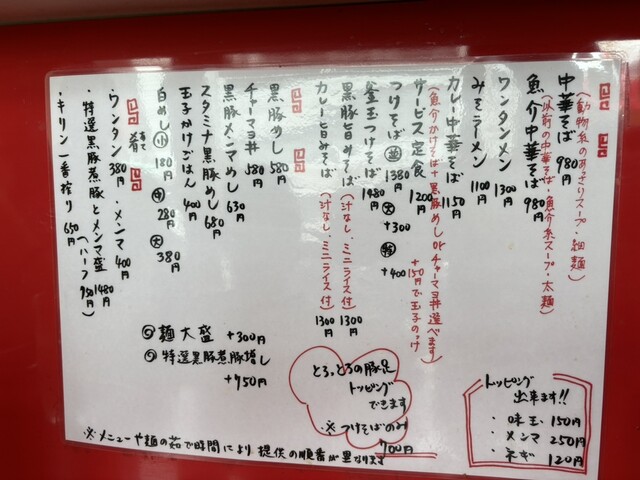 中華そば 980円
(動物系のあっさりスープ・細麺)
魚介中華そば 980円
(以前の中華そば・魚介系スープ・太麺)
ワンタンメン 1300円
みそラーメン 1100円
カレー中華そば 1150円
サービス定食 1200円
(魚介かけそば + 黒豚めし or チャーマヨ丼 選べます)
+150円で玉子のっけ
つけそば 並 1380円 大 +300 特 +400
釜玉つけそば 1480円
黒豚旨みそば (汁なし、ミニライス付) 1300円
カレー旨みそば (汁なし、ミニライス付) 1300円
黒豚めし 580円
チャーマヨ丼 580円
黒豚メンマめし 630円
スタミナ黒豚めし 680円
玉子かけごはん 400円
白めし 小 180円 中 280円 大 380円
あて 肴
・ワンタン 380円 ・メンマ 400円
・特選黒豚煮豚とメンマ盛 1480円
(ハーフ 950円)
・キリン一番搾り 650円
◎麺大盛 +300円
◎特選黒豚煮豚増し +750円
とろっとろの豚足
トッピング
できます
※つけそばのみ
700円
トッピング
出来ます!!
・味玉 150円
・メンマ 250円
・ネギ 120円
※メニューや麺の茹で時間により提供の順番が異なります